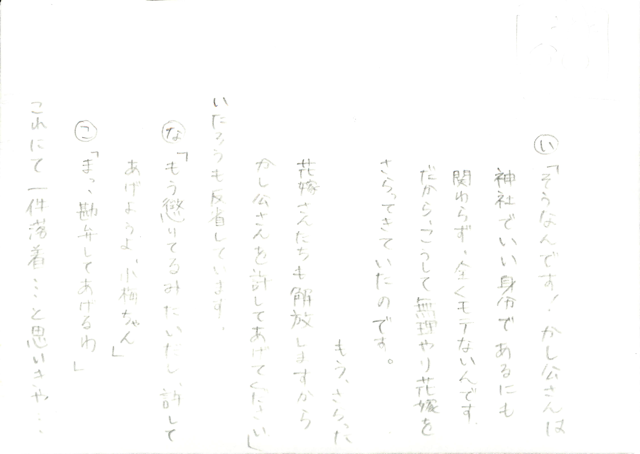 い「そうなんです！かし公さんは
神社でいい身分であるにも
関わらず、全くモテないんです
だから、こうして無理やり花嫁を
さらってきていたのです。
もう、さらった
花嫁さんたちも解放しますから
かし公さんを許してあげてください」
いたろうも反省しています.
な「もう懲りてるみたいだし、許して
あげようよ、小梅ちゃん」
こ「まっ、勘弁してあげるわ」
これにて一件落着…と思いきや…